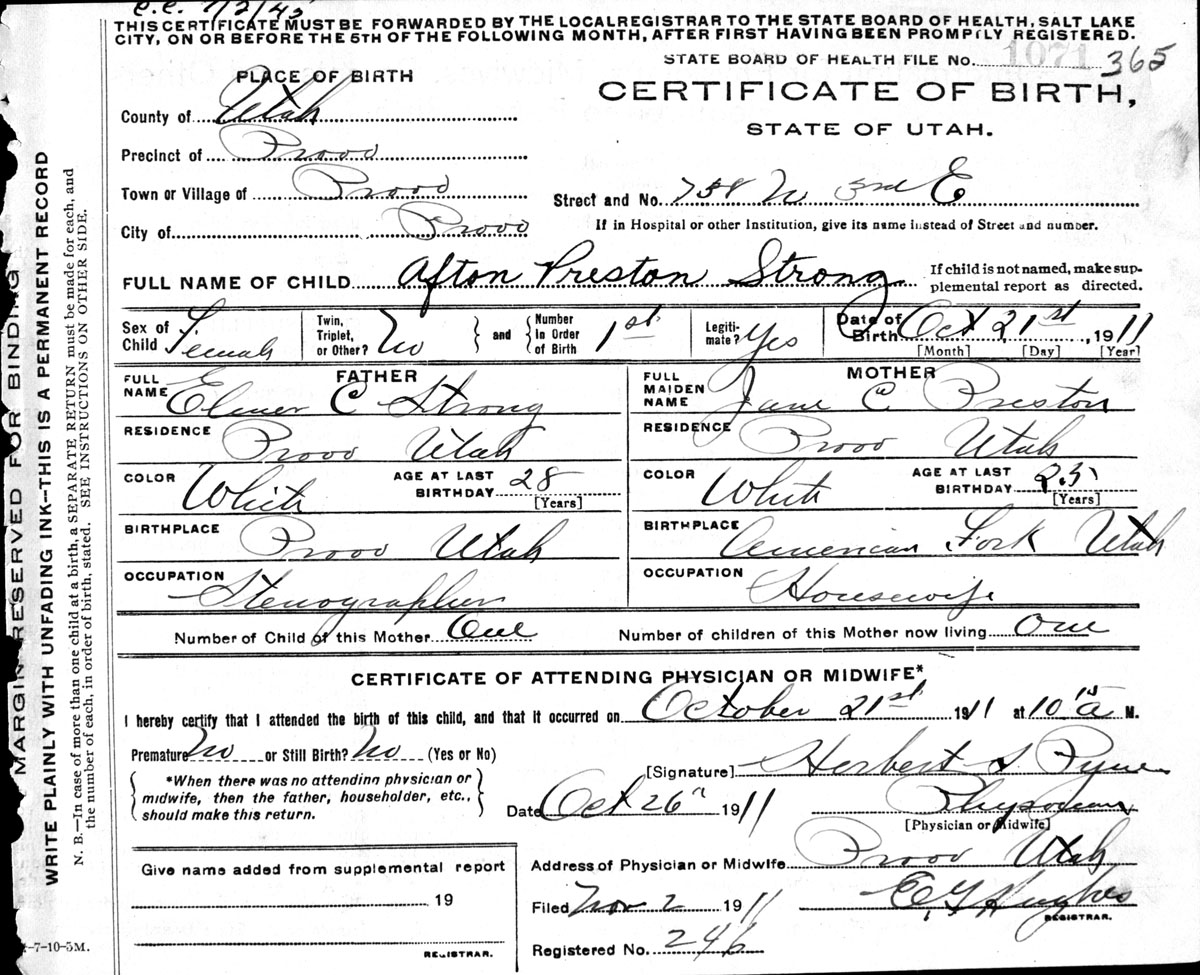 C.C. 7/2/42
THIS CERTIFICATE MUST BE FORWARDED BY THE LOCAL REGISTRAR TO THE STATE BOARD OF HEALTH, SALT LAKE
CITY, ON OR BEFORE THE 5TH OF THE FOLLOWING MONTH, AFTER FIRST HAVING BEEN PROMPTLY REGISTERED.
STATE BOARD OF HEALTH FILE No. 1071 365
PLACE OF BIRTH
CERTIFICATE OF BIRTH,
STATE OF UTAH.
County of Utah
Precinct of Provo
Town or Village of Provo
Street and No. 758 N 3rd E
City of Provo
If in Hospital or other Institution, give its name instead of Street and number.
FULL NAME OF CHILD Afton Preston Strong
If child is not named, make sup-
plemental report as directed.
Sex of Child Female
Twin, Triplet, or Other? No
and
Number In Order of Birth 1st
Legiti-mate? Yes
Date of Birth Oct 21st, 1911
[Month] [Day] [Year]
FATHER
FULL NAME Elmer C Strong
RESIDENCE Provo Utah
COLOR White AGE AT LAST BIRTHDAY 28 [Years]
BIRTHPLACE Provo Utah
OCCUPATION Stenographer
MOTHER
FULL MAIDEN NAME Jane C. Preston
RESIDENCE Provo Utah
COLOR White AGE AT LAST BIRTHDAY 23 [Years]
BIRTHPLACE American Fork Utah
OCCUPATION Housewife
Number of Child of this Mother One Number of children of this Mother now living One
CERTIFICATE OF ATTENDING PHYSICIAN OR MIDWIFE*
I hereby certify that I attended the birth of this child, and that it occurred on October 21st 1911 at 10 15 a M.
Premature No or Still Birth? No (Yes or No)
*When there was no attending physician or
midwife, then the father, householder, etc.,
should make this return.
[Signature] Herbert S Pyne
Date Oct 26" 1911 Physician
[Physician or Midwife]
Address of Physician or Midwife Provo Utah
Give name added from supplemental report
19
REGISTRAR.
Filed Nov 2 1911 E. G. Hughes
REGISTRAR.
Registered No. 246
-7-10-5M.
MARGIN RESERVED FOR BINDING
WRITE PLAINLY WITH UNFADING INK—THIS IS A PERMANENT RECORD
N. B.—In case of more than one child at a birth, a SEPARATE RETURN must be made for each, and
the number of each, in order of birth, stated. SEE INSTRUCTIONS ON OTHER SIDE.